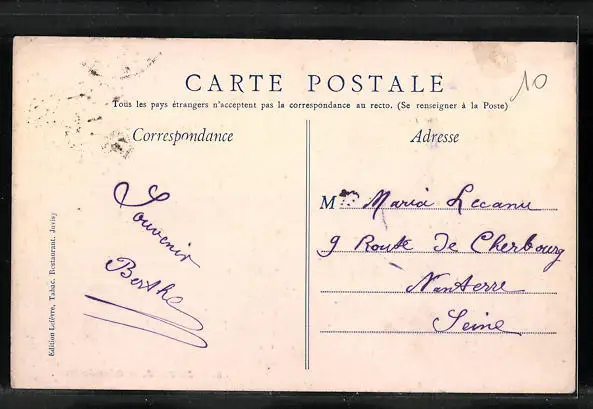 CARTE POSTALE
Tous les pays étrangers n'acceptent pas la correspondance au recto. (Se renseigner à la Poste)
10
Correspondance
Adresse
Souvenir
Berthe
M Maria Lecanu
9 Route De Cherbourg
Nanterre
Seine
Edition Lefèvre, Tabac, Restaurant, Juvisy